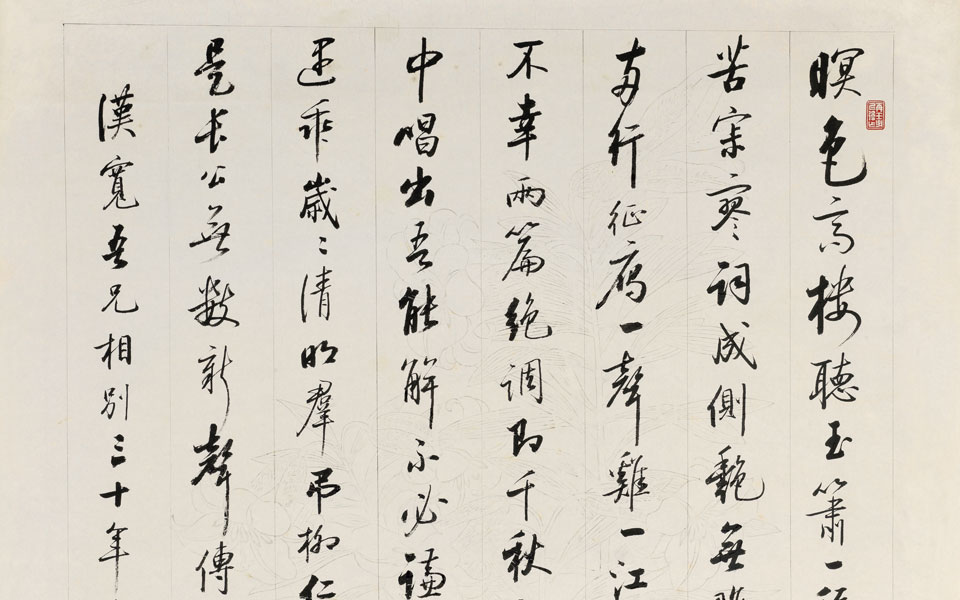 暝色高樓聽玉簫一
苦寂寥詞成側艷無
兩行征雁一聲雞一江
不幸兩篇絕調即千秋
中唱出吾能解不必謙
遇乖歲〻清明羣弔柳仁
是長公無數新聲傳
漢寬吾兄相別三十年